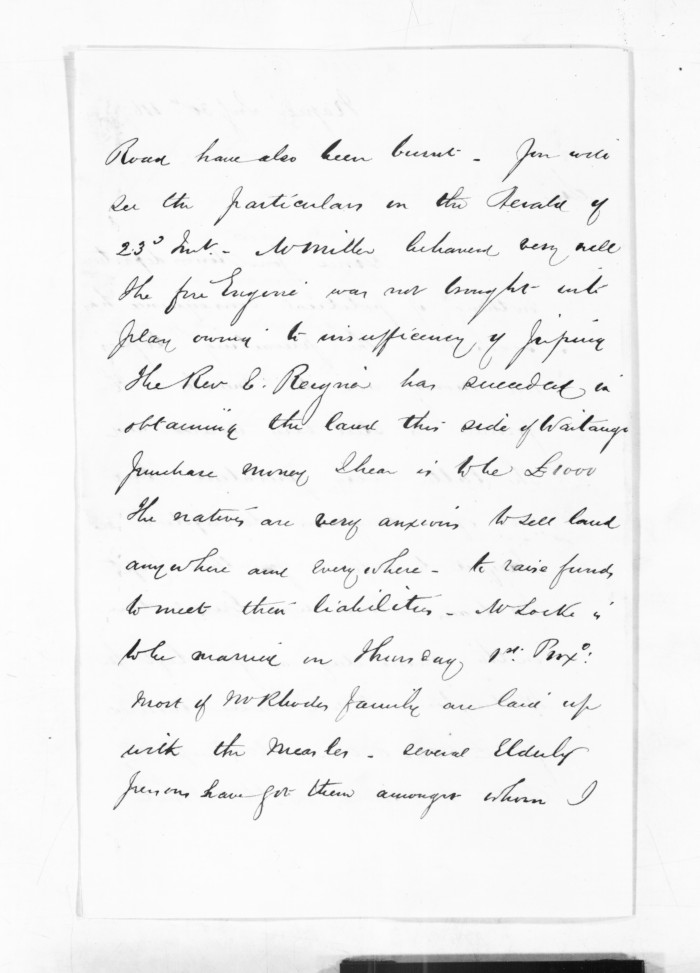 Road have also been burnt - You will
see the particulars in the Herald of
23d Inst. - Mr Miller behaved very well
the fire Engine was not brought into
play owing to insufficiency of Piping
The Rev E. Reignier has succeeded in
obtaining the land this side of Waitangi
purchase money I hear is to be £1000
The natives are very anxious to sell land
anywhere and everywhere - to raise funds
to meet their liabilities - Mr Locke is
to be married on Thursday 1st. Proxo:
Most of Mr Rhodes family are laid up
with the Measles - several Elderly
persons have got them amongst whom I